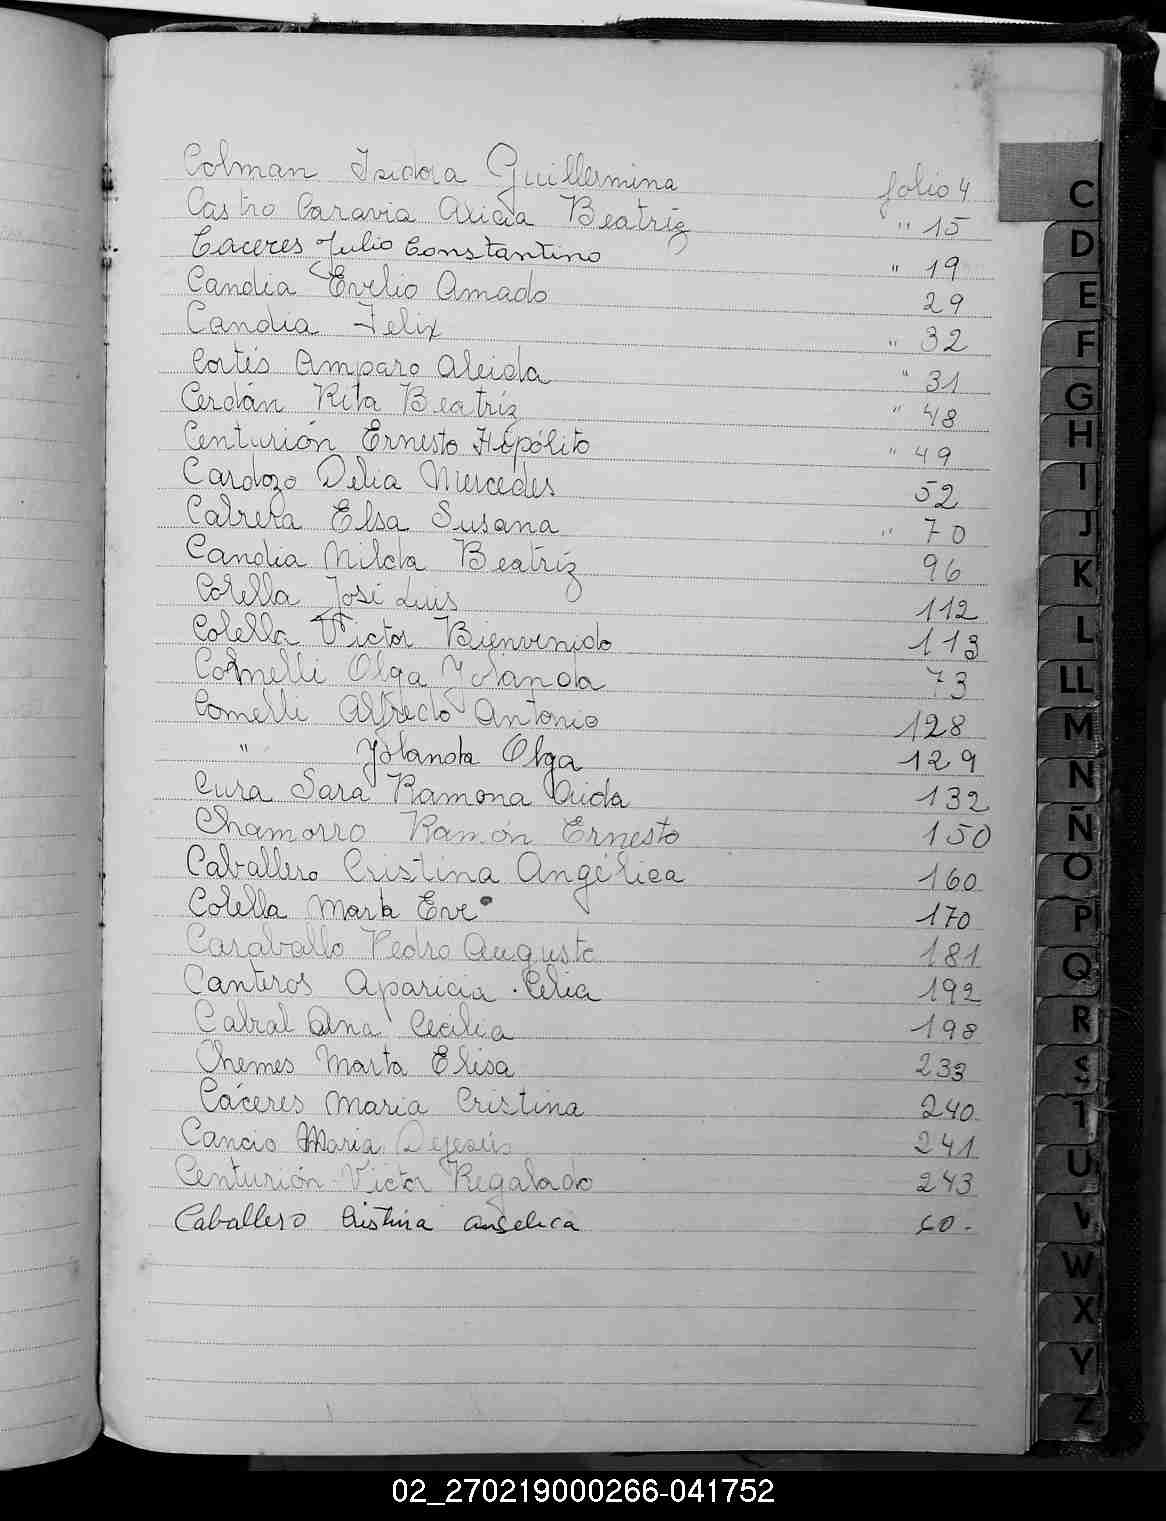 Colman Isidora Guillermina folio 4
Castro Caravia Alicia Beatríz " 15
Caceres Julio Constantino " 19
Candia Evelio Amado 29
Candia Felix " 32
Cortés Amparo Aleida " 31
Cerdán Rita Beatríz " 48
Centurión Ernesto Hipólito " 49
Cardozo Delia Mercedes 52
Cabrera Elsa Susana " 70
Candia Nilda Beatríz 96
Colella José Luis 112
Colella Victor Bienvenido 113
Comelli Olga Yolanda 73
Comelli Alfredo Antonio 128
" Yolanda Olga 129
Cura Sara Ramona Aida 132
Chamorro Ramón Ernesto 150
Caballero Cristina Angélica 160
Colella Marta Eve 170
Caraballo Pedro Augusto 181
Canteros Aparicia Celia 192
Cabral Ana Cecilia 198
Chemes Marta Elisa 233
Cáceres Maria Cristina 240
Cancio Maria Dejesús 241
Centurión Victor Regalado 243
Caballero Cristina Angelica 60.
C
D
E
F
G
H
I
J
K
L
LL
M
N
Ñ
O
P
Q
R
S
T
U
V
W
X
Y
Z
02_270219000266-041752